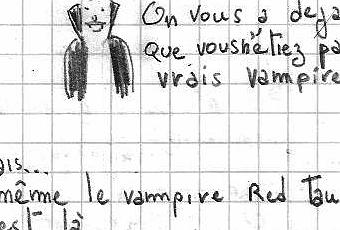 On vous a deja
que vous n'étiez pa
vrais vampire
ais...
même le vampire Red Tau
est là